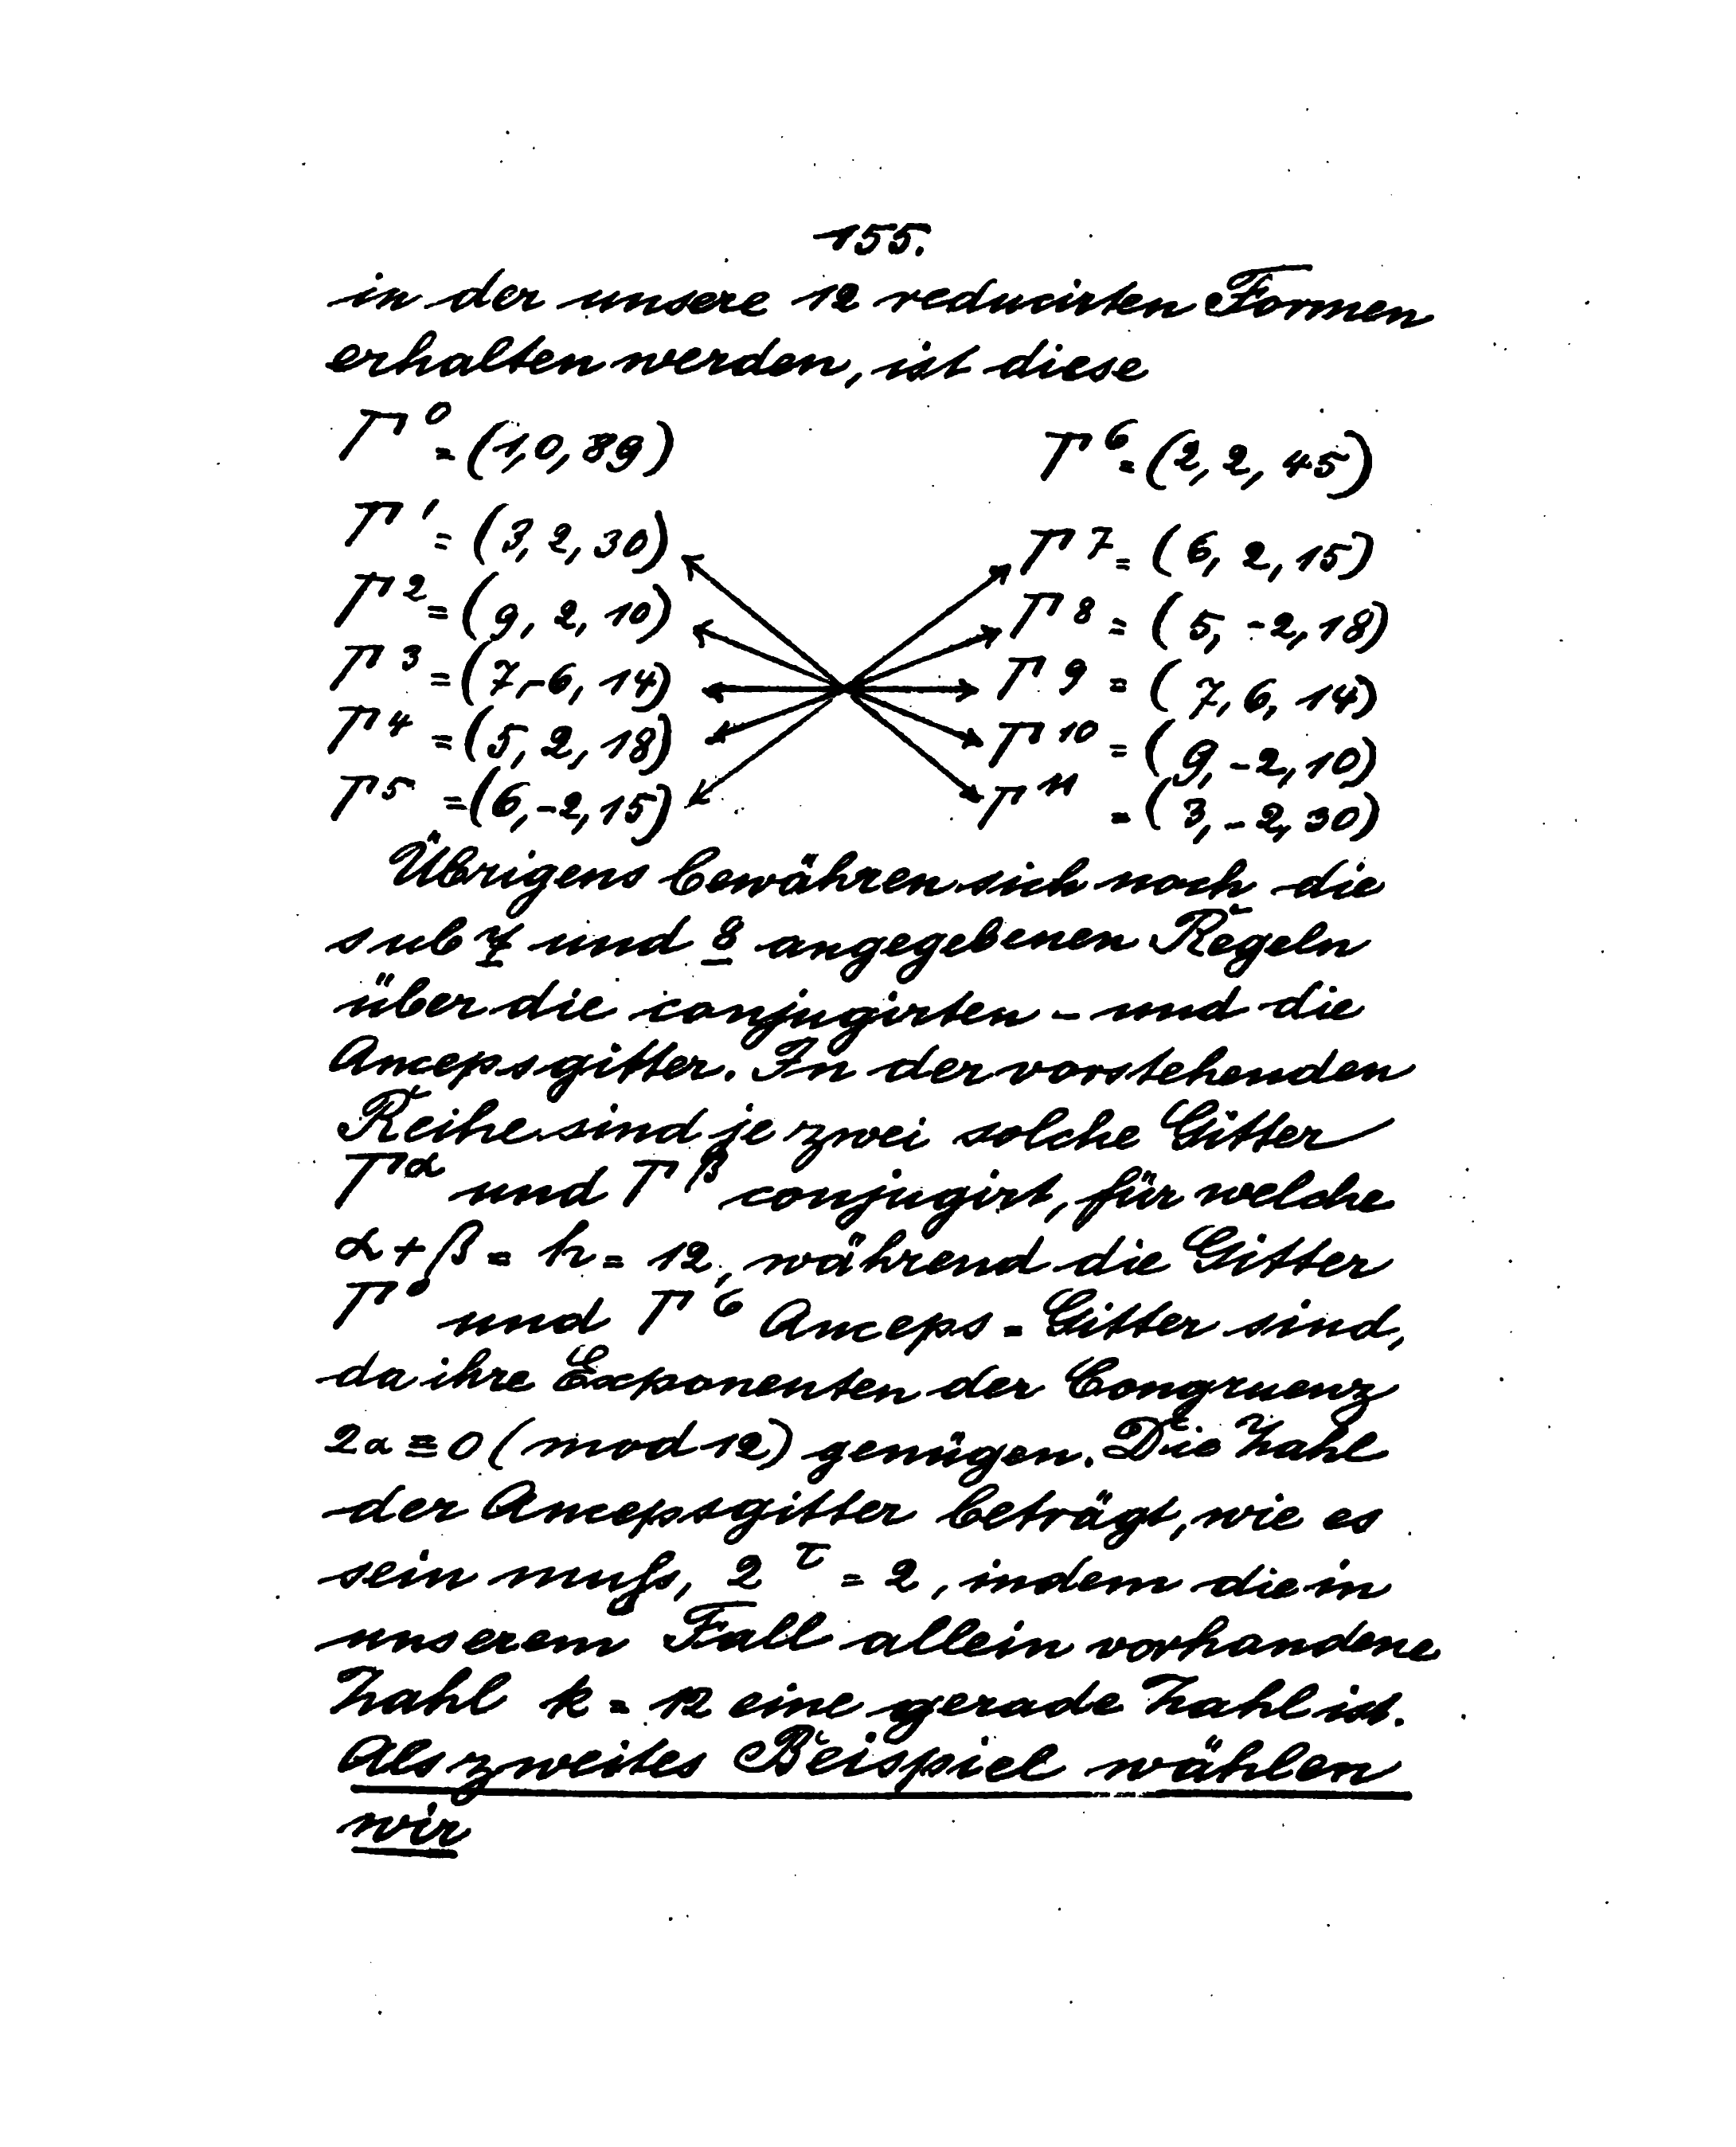 155.
in der unsere 12 reducirten Formen
erhalten werden, ist diese
Γ⁰ = (1, 0, 89) Γ⁶ = (2, 2, 45)
Γ¹ = (3, 2, 30) Γ⁷ = (6, 2, 15)
Γ² = (9, 2, 10) Γ⁸ = (5, -2, 18)
Γ³ = (7, -6, 14) Γ⁹ = (7, 6, 14)
Γ⁴ = (5, 2, 18) Γ¹⁰ = (9, -2, 10)
Γ⁵ = (6, -2, 15) Γ¹¹ = (3, -2, 30)
Übrigens bewähren sich noch die
sub 7 und 8 angegebenen Regeln
über die conjugirten - und die
Ancepsgitter. In der vorstehenden
Reihe sind je zwei solche Gitter
Γ^α und Γ^β conjugirt, für welche
α + β = h = 12, während die Gitter
Γ⁰ und Γ⁶ Anceps = Gitter sind,
da ihre Exponenten der Congruenz
2α ≡ 0 (mod 12) genügen. Die Zahl
der Ancepsgitter beträgt, wie es
sein muſs, 2^τ = 2, indem die in
unserem Fall allein vorhandene
Zahl k = 12 eine gerade Zahl ist.
Als zweites Beispiel wählen
wir